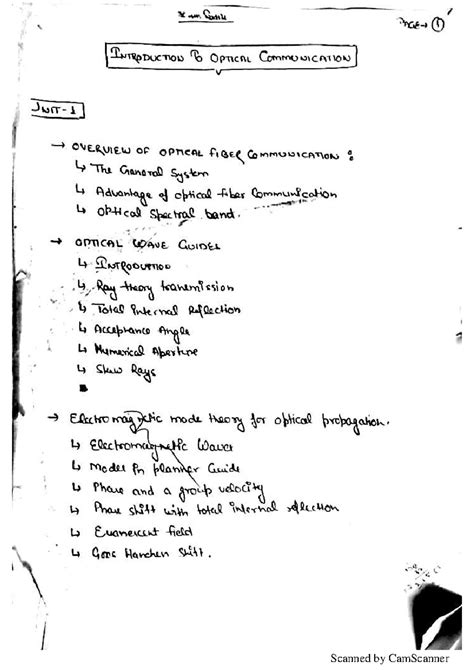 PAGE → 1
INTRODUCTION TO OPTICAL COMMUNICATION
UNIT-1
→ OVERVIEW OF OPTICAL FIBER COMMUNICATION :
↳ The General System
↳ Advantage of optical fiber Communication
↳ Optical Spectral band.
→ OPTICAL WAVE GUIDES
↳ INTRODUCTION
↳ Ray theory transmission
↳ Total Internal Reflection
↳ Acceptance Angle
↳ Numerical Aperture
↳ Skew Rays
→ Electromagnetic mode theory for optical propagation.
↳ Electromagnetic Waves
↳ Modes in planner Guide
↳ Phase and a group velocity
↳ Phase shift with total internal reflection
↳ Evanescent field
↳ Goos Hanchen Shift.
Scanned by CamScanner